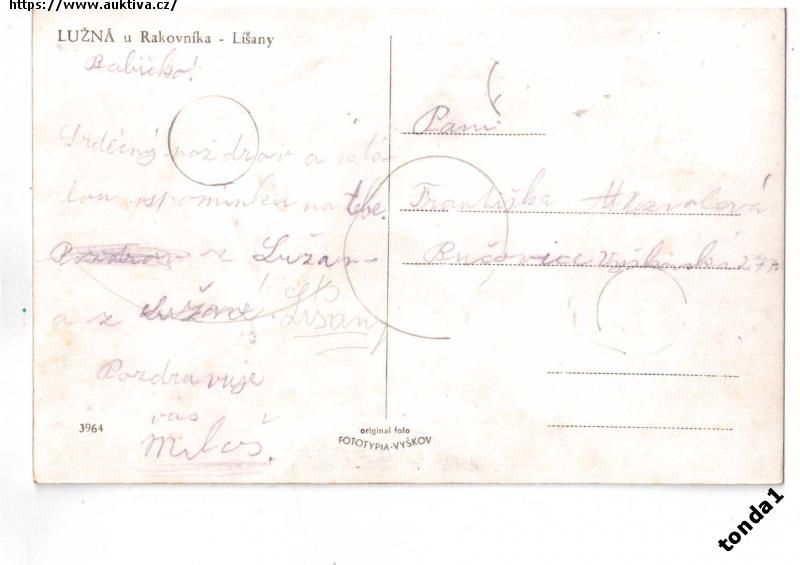 https://www.auktiva.cz/
LUŽNÁ u Rakovníka - Líšany
Babičko!
Srdečný pozdrav a stá-
lou vspomínku na tebe.
Pozdrav z Lužan-
a z Lužané Líšan
Pozdravuje
vás
Miloš.
3964
original foto
FOTOTYPIA-VYŠKOV
Paní
Františka
Bučovice Vyškovská 277.
tonda1